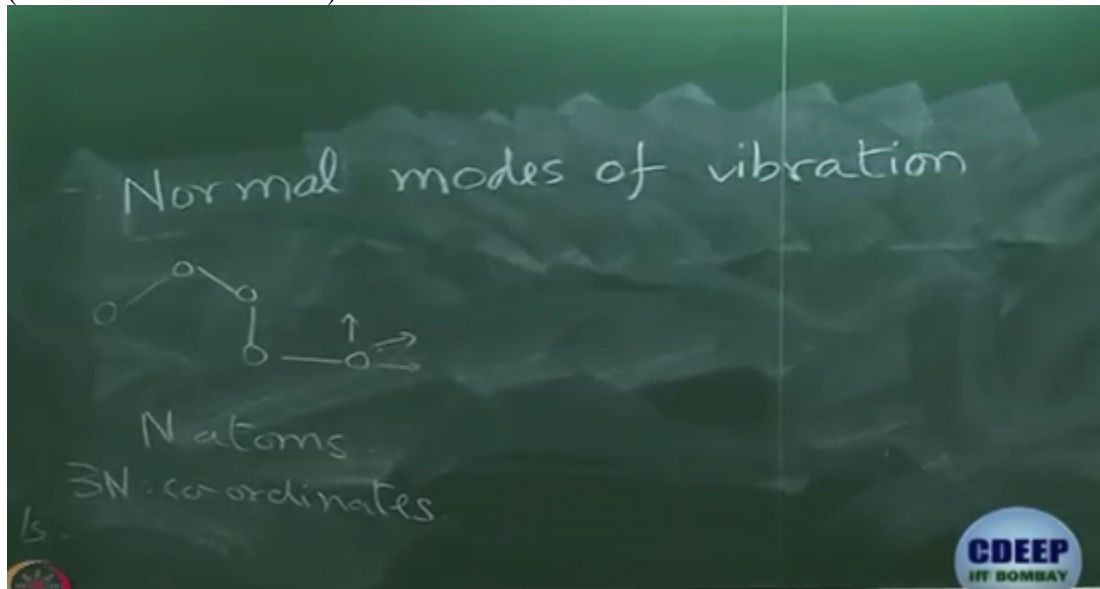 Normal modes of vibration
N atoms.
3N co-ordinates.
CDEEP
IIT BOMBAY